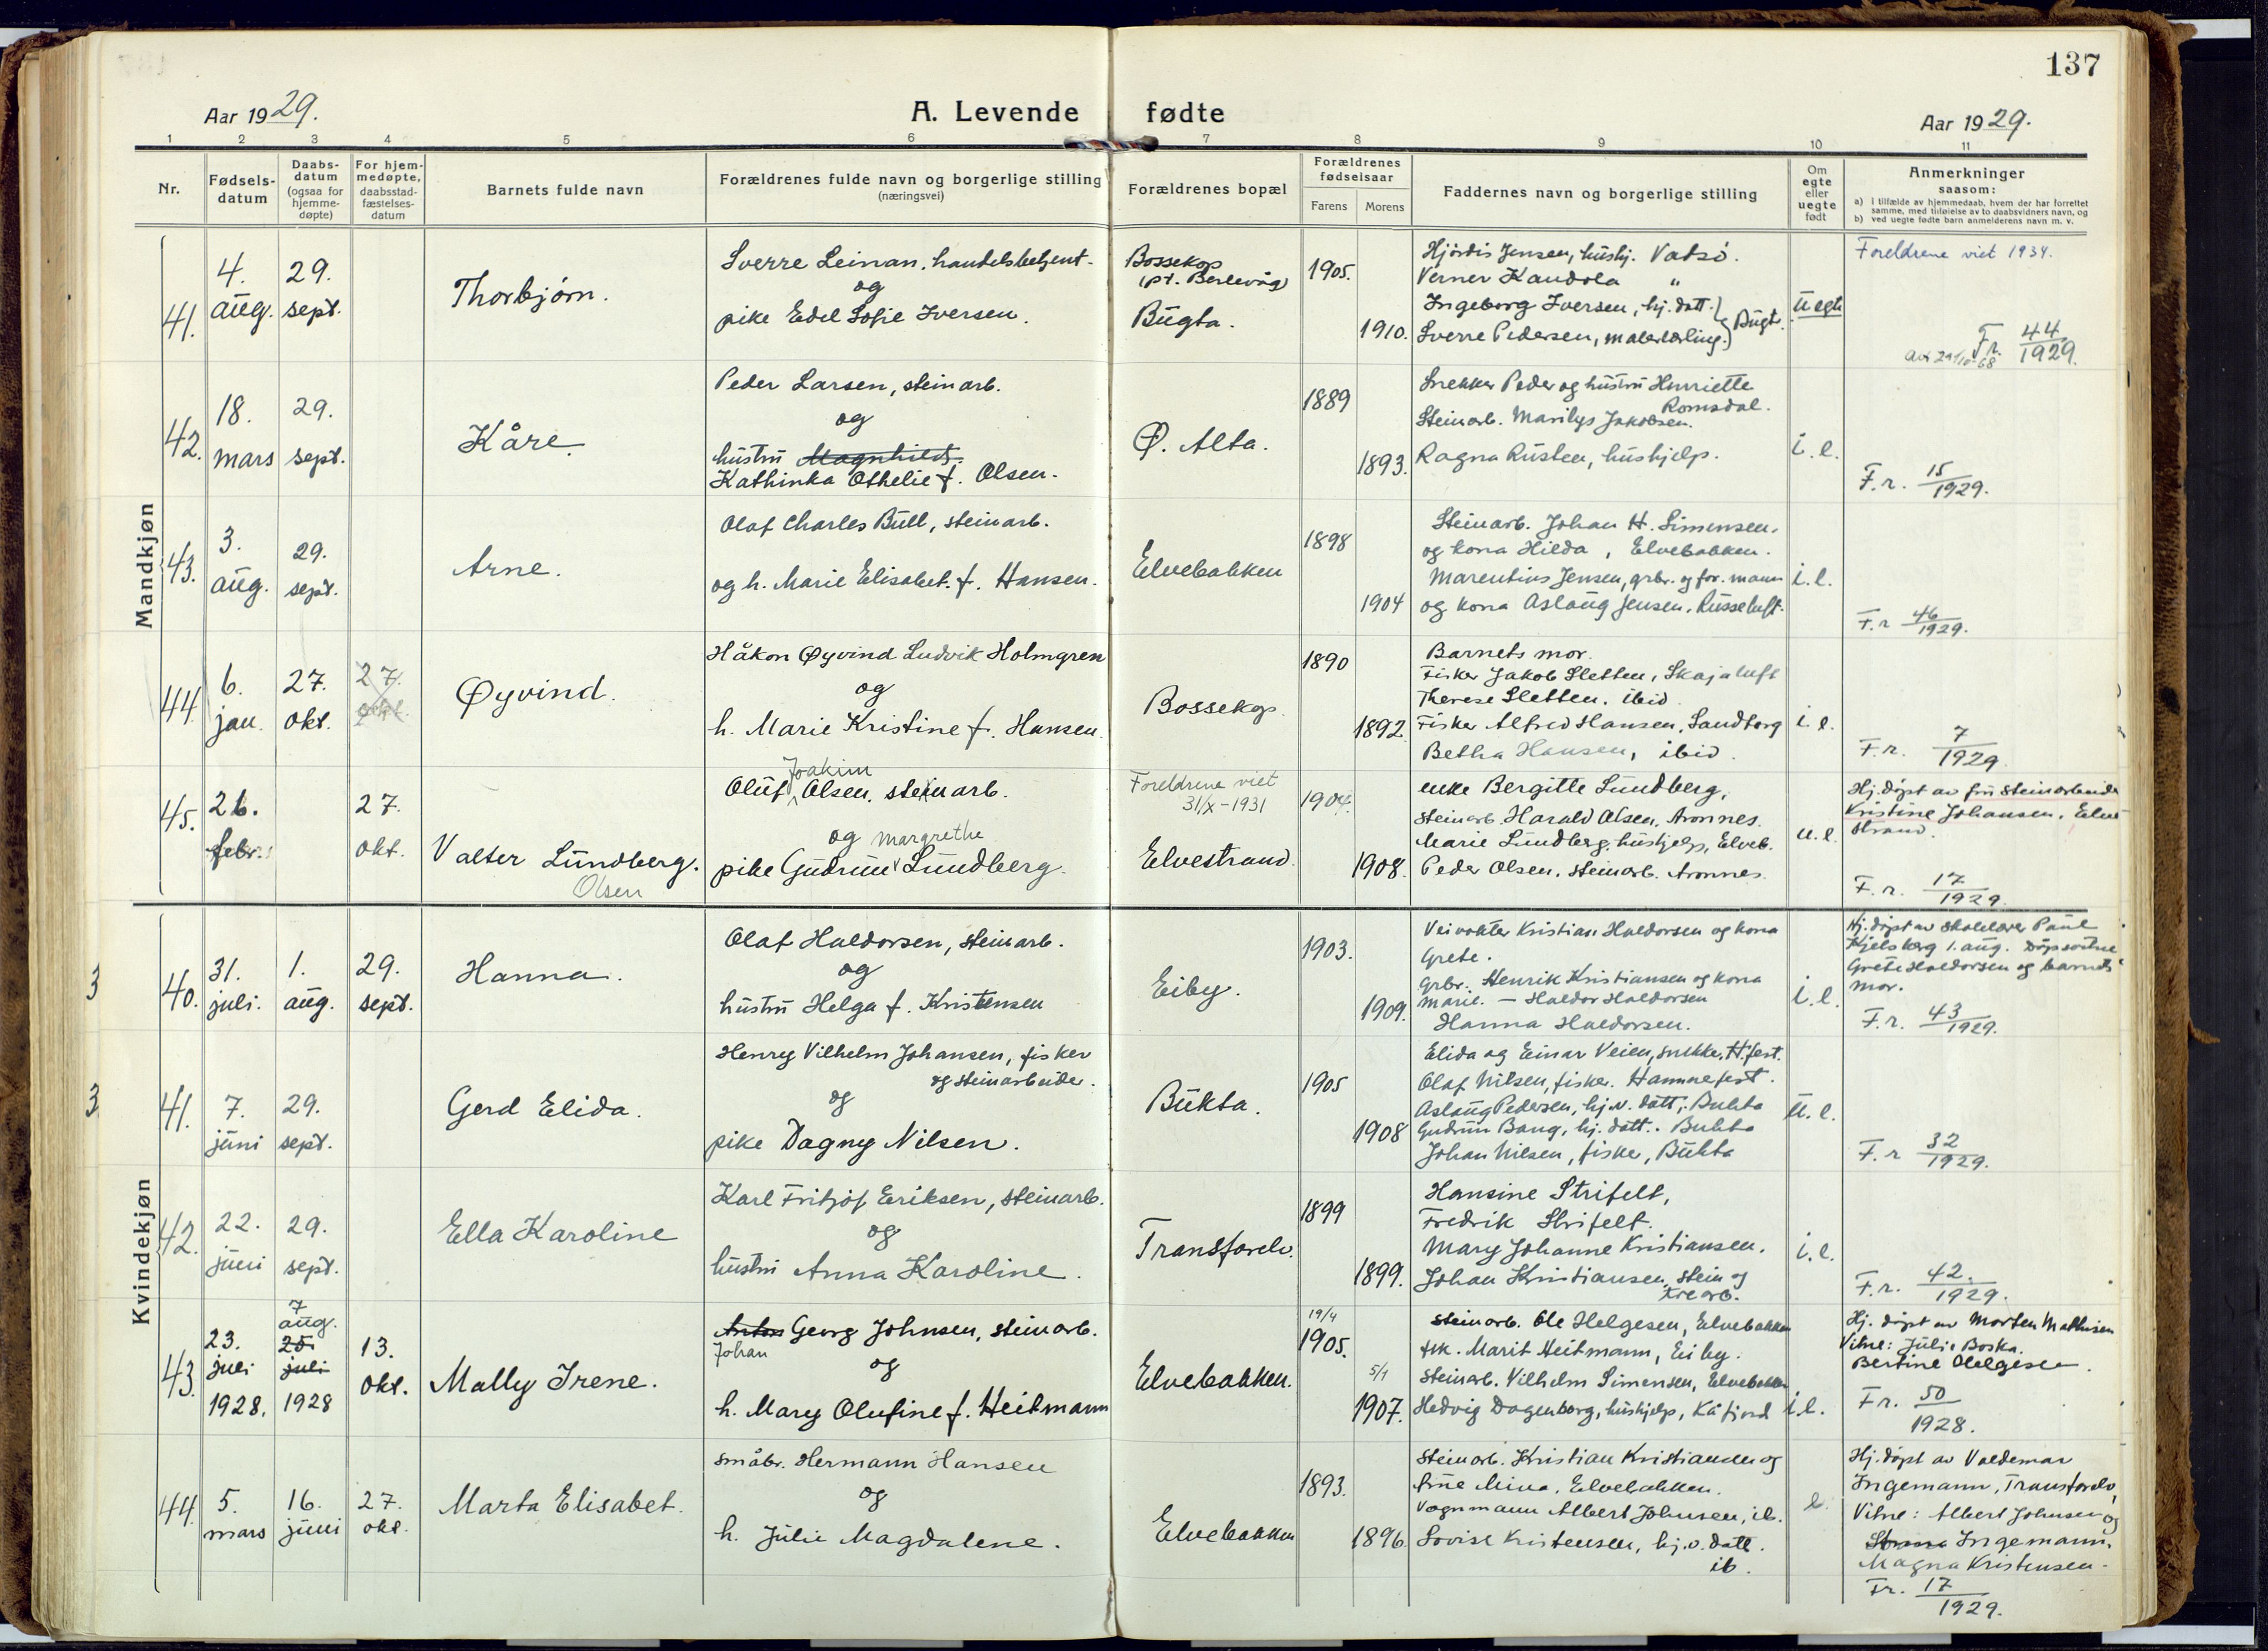 137
Aar 1929.
A. Levende fødte
Aar 1929.
1 2 3 4 5 6 7 8 9 10 11
Nr.
Fødsels-
datum
Daabs-
datum
(ogsaa for
hjemme-
døpte)
For hjem-
medøpte,
daabsstad-
fæstelses-
datum
Barnets fulde navn
Forældrenes fulde navn og borgerlige stilling
(næringsvei)
Forældrenes bopæl
Forældrenes
fødselsaar
Farens Morens
Faddernes navn og borgerlige stilling
Om
egte
eller
uegte
født
Anmerkninger
saasom:
a) i tilfælde av hjemmedaab, hvem der har forrettet
samme, med tilføielse av to daabsvidners navn, og
b) ved uegte fødte barn anmelderens navn m. v.
Mandkjøn
41.
4.
aug.
29.
sept.
Thorbjørn.
Sverre Leinan, handelsbetjent.
og
pike Edel Sofie Iversen.
Bossekop
(pt. Berlevåg)
Bugta.
1905.
1910.
Hjørdis Jensen, hushj. Vadsø.
Verner Kandola "
Ingeborg Iversen, hj. datt.
Sverre Pedersen, malerlærling. Bugt.
Uegte
Foreldrene viet 1934.
F.r. 44
1929.
42.
18.
mars
29.
sept.
Kåre.
Peder Larsen, steinarb.
og
hustru Magnhild
Kathinka Othelie f. Olsen.
Ø. Alta.
1889
1893.
Snekker Peder og hustru Henriette
Romsdal.
Steinarb. Marilys Jakobsen.
Ragna Rusten, hushjelp.
i.e.
F.r. 15
1929.
43.
3.
aug.
29.
sept.
Arne.
Olaf Charles Bull, steinarb.
og h. Marie Elisabet. f. Hansen.
Elvebakken
1898
1904
Steinarb. Johan H. Simensen.
og kona Hilda, Elvebakken.
Marentius Jensen, grbr. og for. mann
og kona Aslaug Jensen. Russeluft.
i.e.
F.r 46
1929.
44.
6.
jan.
27.
okt.
27.
okt.
Øyvind.
Håkon Øyvind Ludvik Holmgren
og
h. Marie Kristine f. Hansen.
Bossekop.
1890
1892.
Barnets mor.
Fisker Jakob Sletten, Skajaluft
Therese Sletten. ibid.
Fisker Alfred Hansen, Sandtorg
Betha Hansen, ibid.
i.e.
F.r. 7
1929
45.
26.
febr.
27.
okt.
Valter Lundberg.
Olsen
Joakim
Oluf Olsen, steinarb.
og Margrethe
pike Gudrun Lundberg.
Foreldrene viet
31/X-1931
Elvestrand.
1904.
1908.
enke Bergitte Lundberg,
steinarb. Harald Olsen, Aronnes.
Marie Lundberg, hushjelp, Elveb.
Peder Olsen, steinarb. Aronnes.
u.e.
Hj.døpt av fru steinarbeider
Kristine Johansen, Elve-
strand.
F.r. 17
1929.
Kvindekjøn
3
40.
31.
juli.
1.
aug.
29.
sept.
Hanna.
Olaf Haldorsen, steinarb.
og
hustru Helga f. Kristensen
Eiby.
1903.
1909.
Veivokter Kristian Haldorsen og kona
Grete.
Grbr. Henrik Kristiansen og kona
Marie. - Haldor Haldorsen
Hanna Haldorsen.
i.e.
Hj.døpt av skolelærer Paul
Kjelsberg 1. aug. Døpsvitne
Grete Haldorsen og barnets
mor.
F.r. 43
1929.
3
41.
7.
juni
29.
sept.
Gerd Elida.
Henry Vilhelm Johansen, fisker
og steinarbeider.
og
pike Dagny Nilsen.
Bukta.
1905
1908
Elida og Einar Veien, snekker, H.fest.
Olaf Nilsen, fisker. Hammefest.
Aslaug Pedersen, hj.v. datt., Bukta
Gudrun Bang, hj. datt.. Bukta
Johan Nilsen, fisker, Bukta
U.e.
F.r 32
1929.
42.
22.
juni
29.
sept.
Ella Karoline
Karl Fritjof Eriksen, steinarb.
og
hustru Anna Karoline.
Transfarelv.
1899
1899.
Hansine Strifelt,
Fredrik Strifelt.
Mary Johanne Kristiansen.
Johan Kristiansen, stein og
trearb.
i.e.
F.r. 42.
1929.
43.
23.
juli
1928.
7
aug.
25.
juli
1928
13.
okt.
Mally Irene.
Anton Georg Johnsen, steinarb.
Johan
og
h. Mary Olufine f. Heitmann
Elvebakken.
19/4
1905.
5/1
1907.
steinarb. Ole Helgesen, Elvebakken
frk. Marit Heitmann, Eiby.
steinarb. Vilhelm Simensen, Elvebakken
Hedvig Dagenborg, hushjelp, Kåfjord
i.e.
Hj. døpt av Morten Mathisen
Vitne: Julie Boska.
Bertine Helgesen.
F.r. 50
1928.
44.
5.
mars
16.
juni
27.
okt.
Marta Elisabet.
småbr. Hermann Hansen
og
h. Julie Magdalene.
Elvebakken
1893.
1896.
steinarb. Kristian Kristiansen og
frue Mina, Elvebakken.
Vognmann Albert Johnsen, ib.
Lovise Kristensen, hj.v. datt.
ib.
e.
Hj.døpt av Valdemar
Ingemann, Transfarelv,
Vitne: Albert Johnsen og
Ingemann.
Magna Kristensen.
F.r. 17
1929.